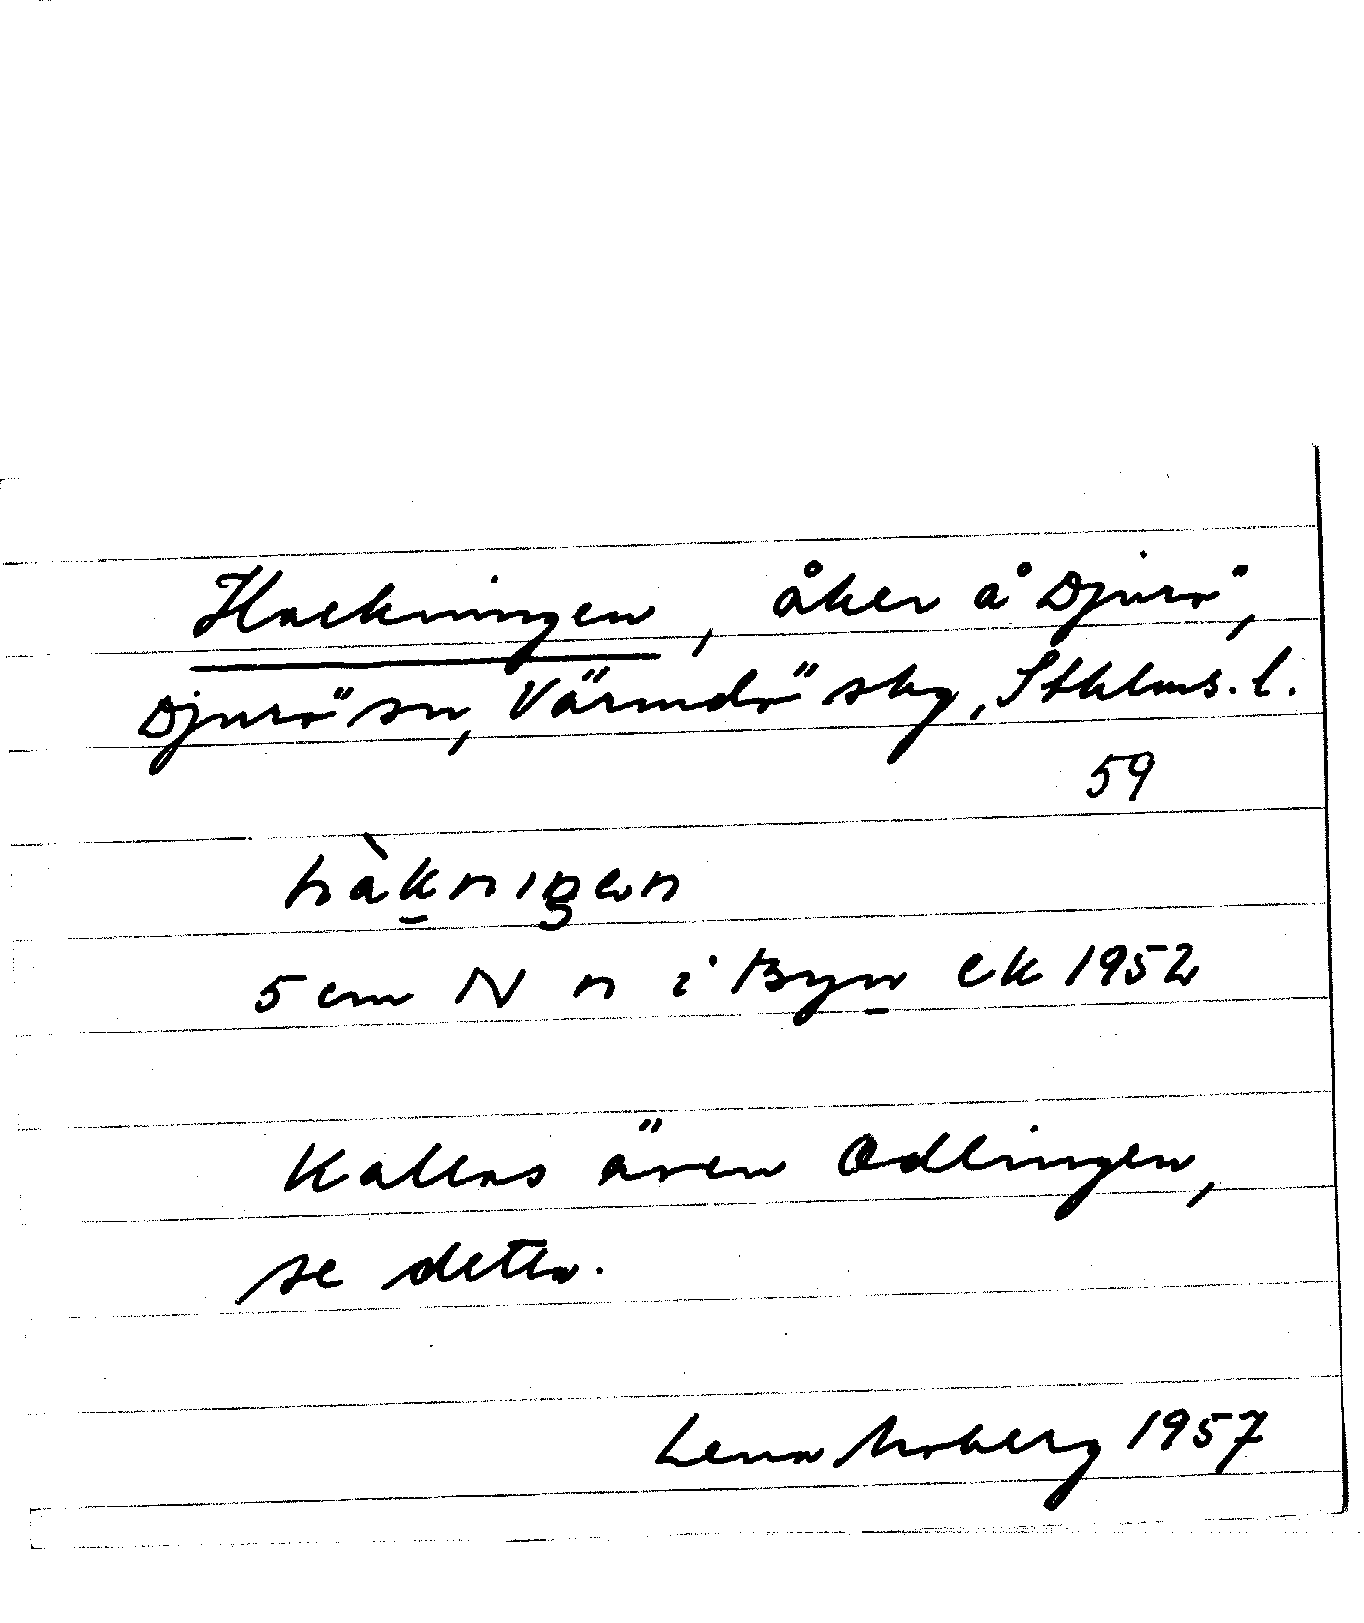 Hackningen, åker å Djurö,
Djurö sn, Värmdö skg, Sthlms. l.
59
hàkniŋen
5 cm N n i Byn ek 1952
Kallas även Odlingen,
se detta.
Lena Moberg 1957